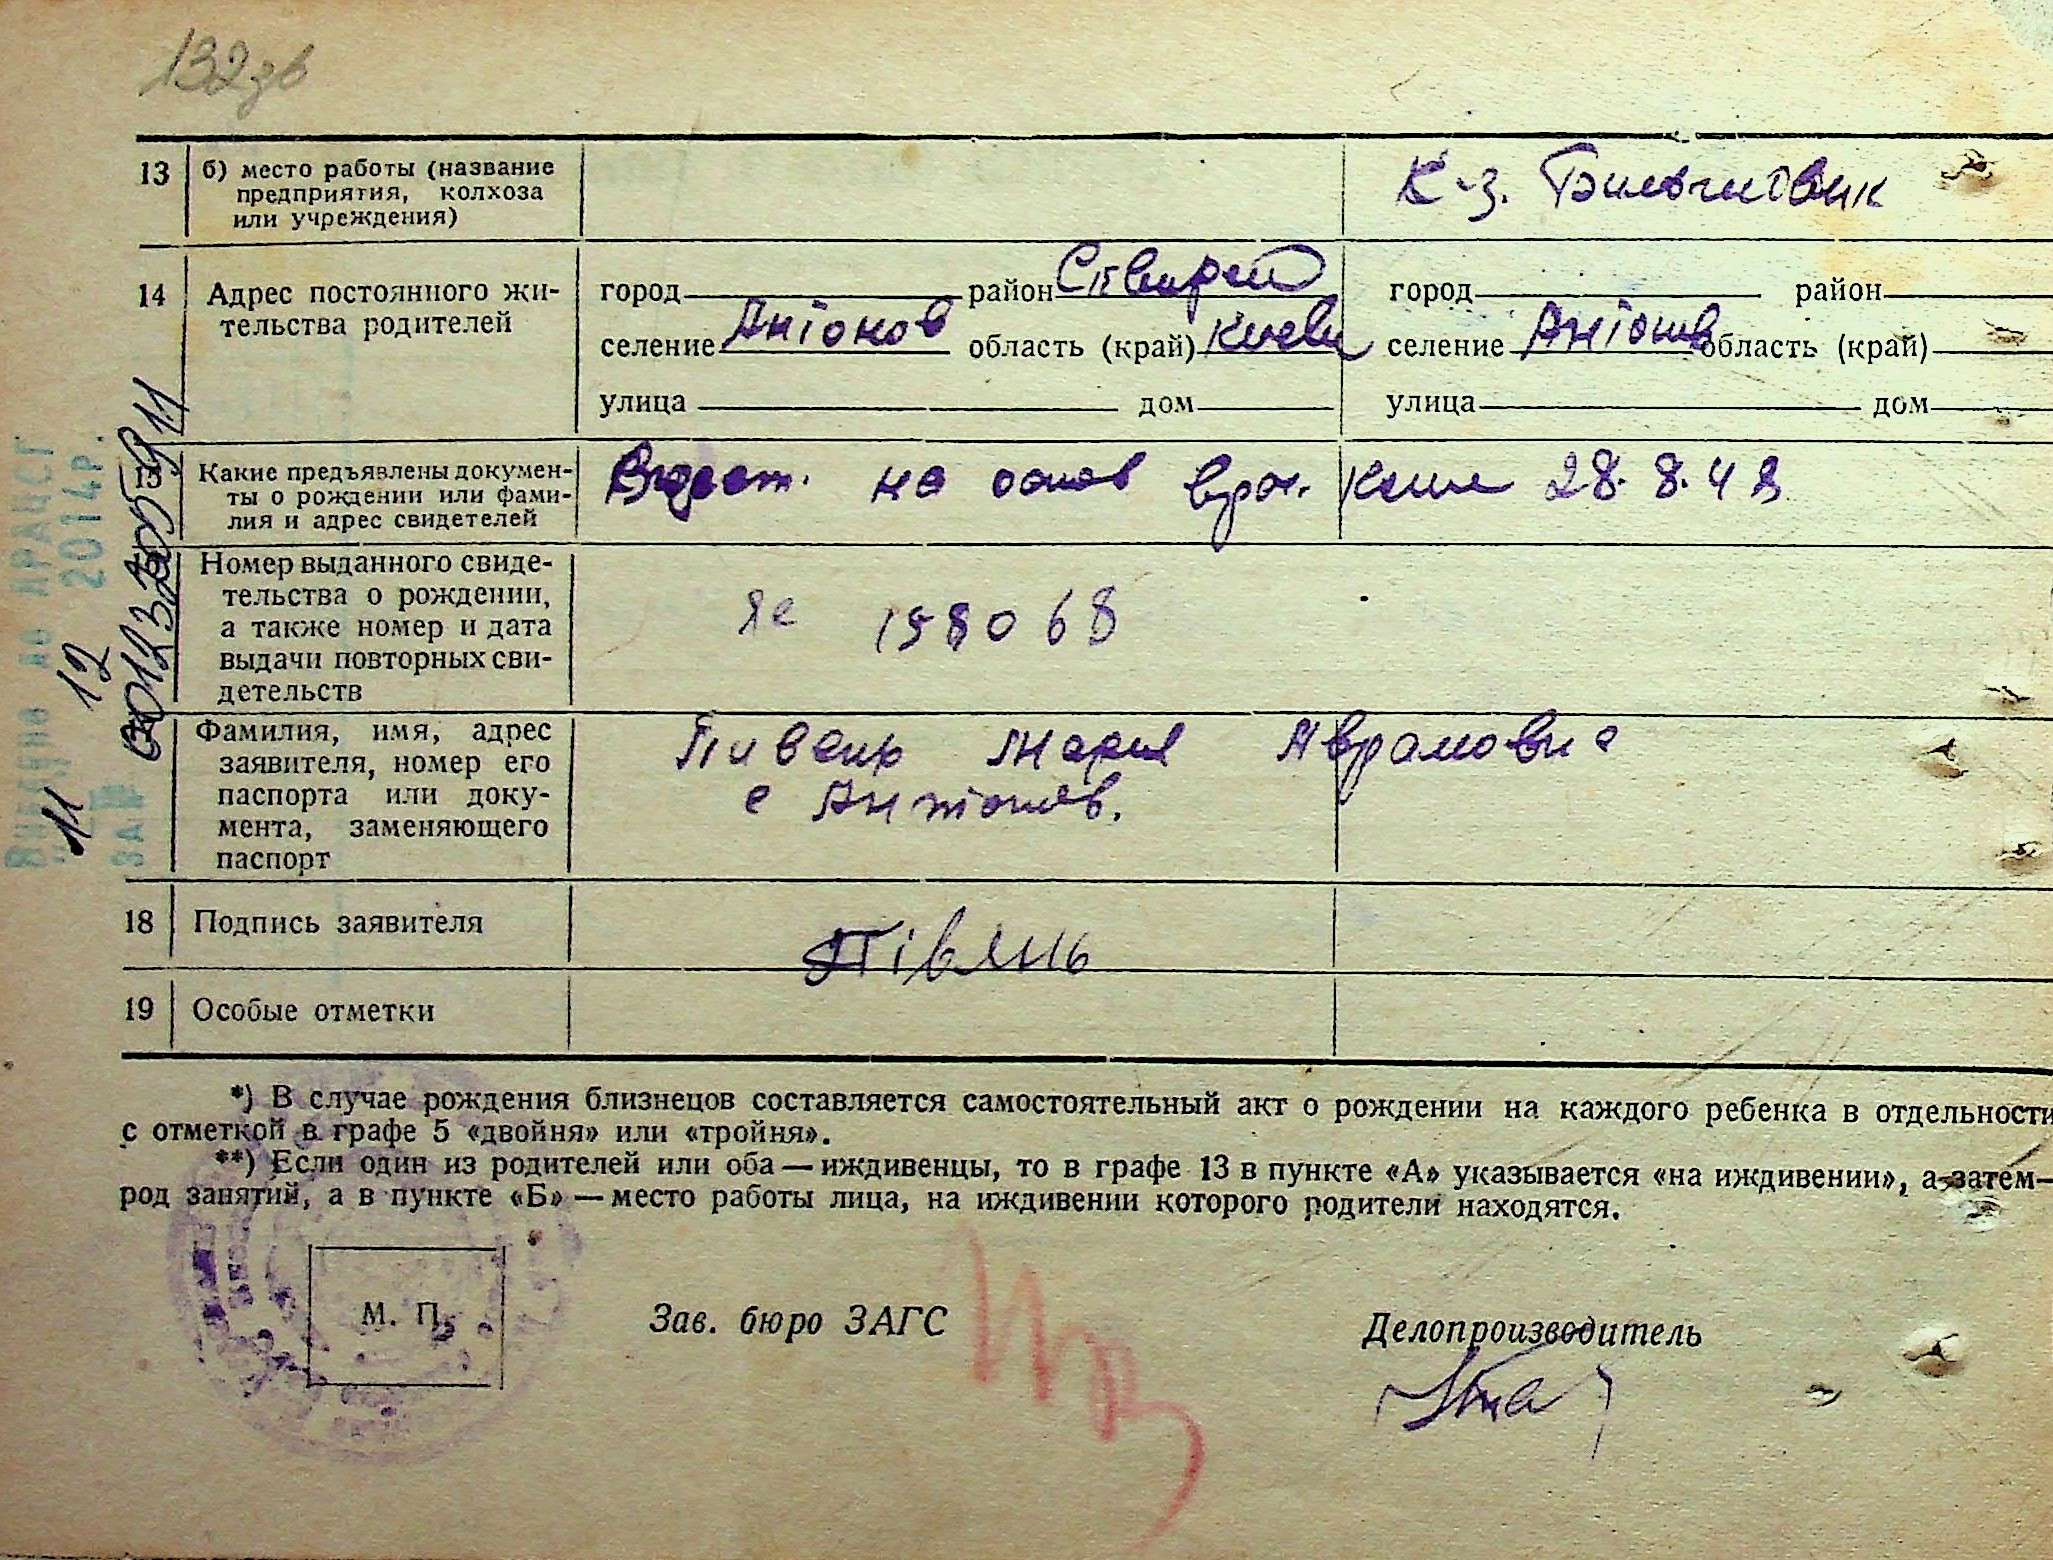 132зв
13 б) место работы (название
предприятия, колхоза
или учреждения)
К-з. Більшовик
14 Адрес постоянного жи-
тельства родителей
город район Сквирск город район
селение Антонов область (край) Киевск селение Антонов область (край)
улица дом улица дом
15 Какие предъявлены докумен-
ты о рождении или фами-
лия и адрес свидетелей
на основ 28.8.48
Номер выданного свиде-
тельства о рождении,
а также номер и дата
выдачи повторных сви-
детельств
158068
Фамилия, имя, адрес
заявителя, номер его
паспорта или доку-
мента, заменяющего
паспорт
Пивень Мария Аврамовна
с Антонов.
18 Подпись заявителя
Півень
19 Особые отметки
*) В случае рождения близнецов составляется самостоятельный акт о рождении на каждого ребенка в отдельности
с отметкой в графе 5 «двойня» или «тройня».
**) Если один из родителей или оба — иждивенцы, то в графе 13 в пункте «А» указывается «на иждивении», а затем—
род занятий, а в пункте «Б» — место работы лица, на иждивении которого родители находятся.
М. П.
Зав. бюро ЗАГС
Делопроизводитель
ДРАЦСГ
2014р.
11 12